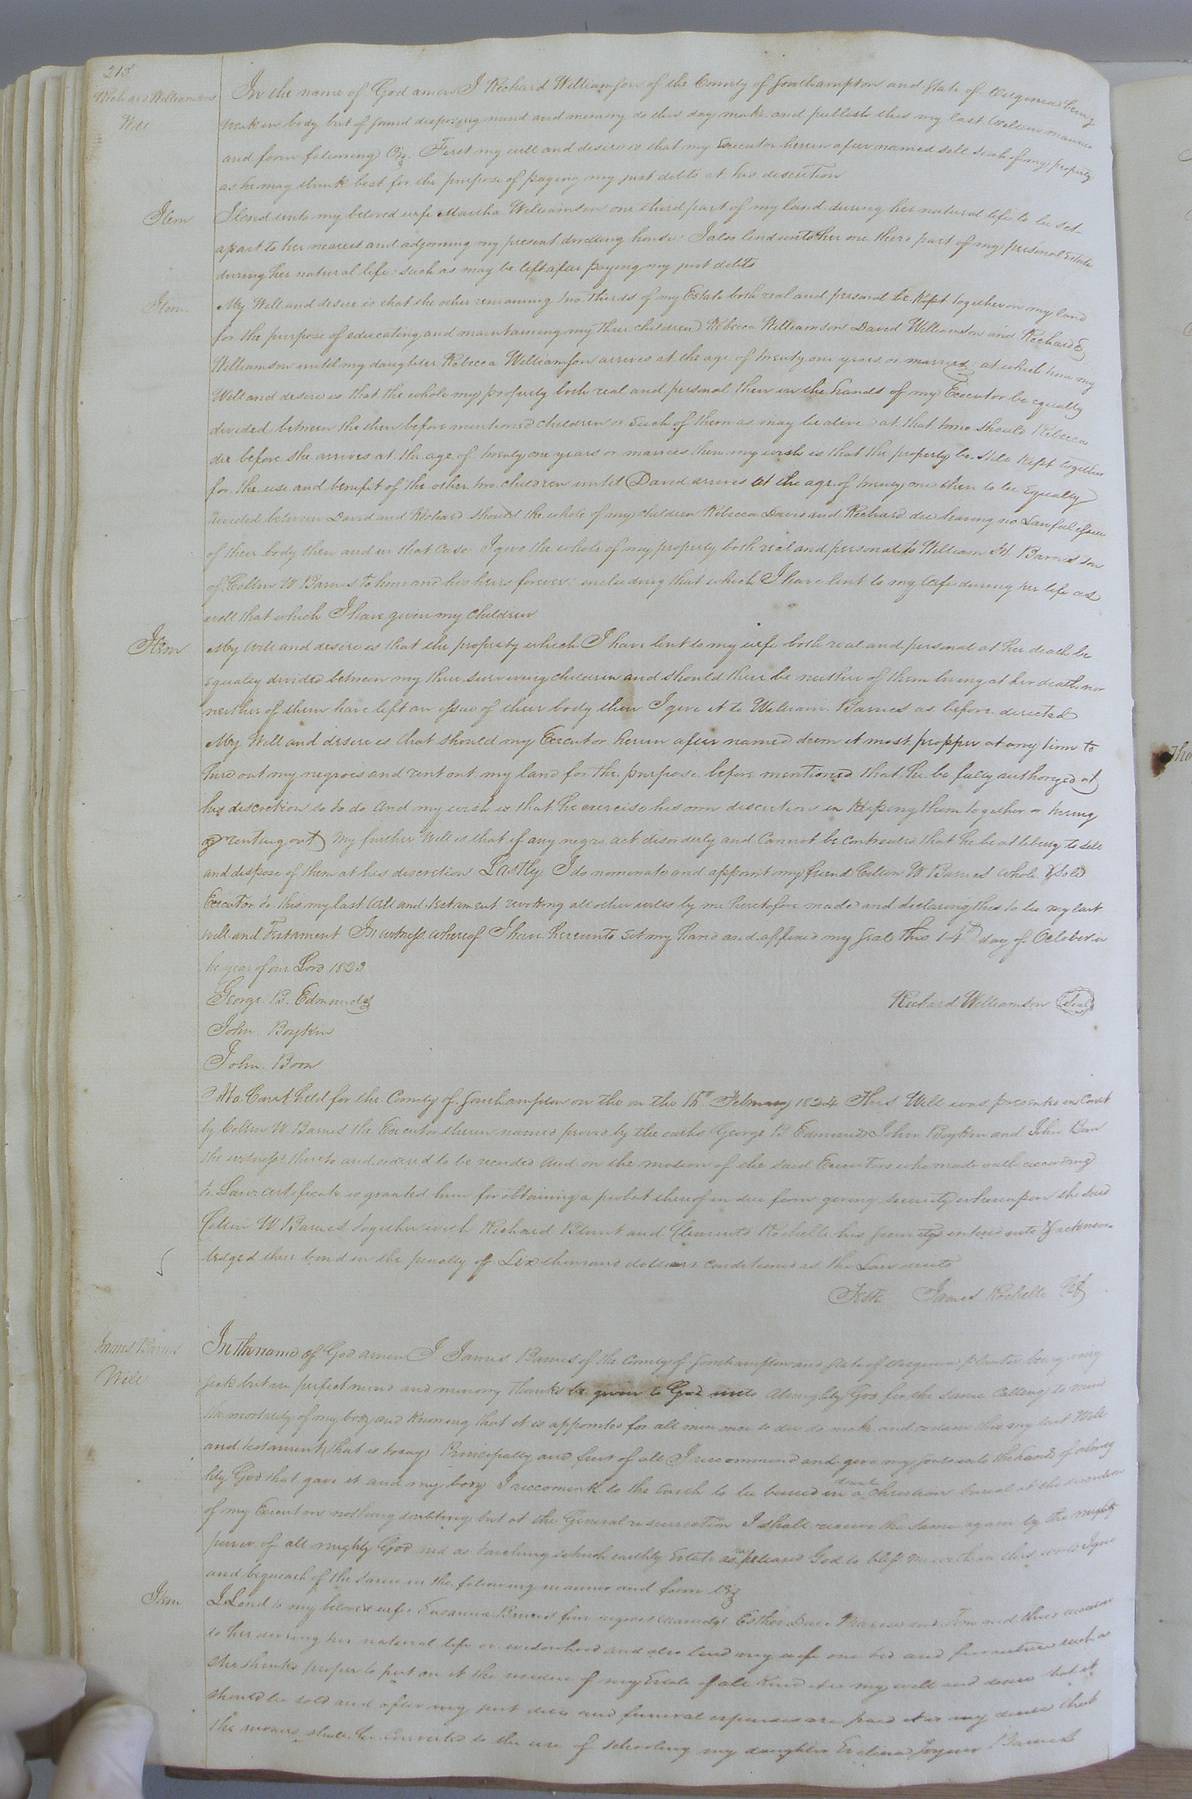 218
Richard Williamsons
Will
In the name of God amen I Richard Williamson of the County of Southampton and State of Virginia being
weak in body but of sound disposing mind and memory do this day make and publish this my last Will in manner
and form following Viz. First my will and desire is that my Executor herein after named sell such of my property
as he may think best for the purpose of paying my just debts at his discretion
Item I lend unto my beloved wife Martha Williamson one third part of my land during her natural life to be set
apart to her nearest and adjoining my present dwelling house. I also lend unto her one third part of my personal Estate
during her natural life such as may be left after paying my just debts
Item My Will and desire is that the other remaining two thirds of my Estate both real and personal be kept together on my land
for the purpose of educating and maintaining my three children Rebecca Williamson David Williamson and Richard E
Williamson until my daughter Rebecca Williamson arrives at the age of twenty one years or marries, at which time my
Will and desire is that the whole my property both real and personal then in the hands of my Executor be equally
divided between the then before mentioned children or such of them as may be alive at that time should Rebecca
die before she arrives at the age of twenty one years or marries then my wish is that the property be still kept together
for the use and benefit of the other two children until David arrives at the age of twenty one then to be Equally
divided between David and Richard should the whole of my children Rebecca David and Richard die leaving no Lawful issue
of their body then and in that case I give the whole of my property both real and personal to William H. Barnes son
of Collin W Barnes to him and his heirs forever including that which I have lent to my wife during her life as
well that which I have given my children
Item My will and desire is that the property which I have lent to my wife both real and personal at her death be
equally divided between my three surviving children and should there be neither of them living at her death nor
neither of them have left an issue of their body then I give it to William Barnes as before directed
My Will and desire is that should my Executor herein after named deem it most propper at any time to
hire out my negroes and rent out my land for the purpose before mentioned that he be fully authorized at
his discretion so to do and my wish is that he exercise his own discretion in keeping them together or hiring
or renting out my further Will is that if any negro act disorderly and cannot be controuled that he be at liberty to sell
and dispose of them at his discretion Lastly I do nominate and appoint my friend Collin W Barnes whole & sole
Executor to this my last Will and testament revoking all other wills by me heretofore made and declaring this to be my last
will and Testament In witness whereof I have hereunto set my hand and affixed my seal this 14th day of October in
the year of our Lord 1823
George B. Edmunds Richard Williamson Seal
John Boykin
John Boon
At a Court held for the County of Southampton on the on the 16th February 1824 This Will was presented in Court
by Collin W Barnes the Executor therein named proved by the oaths George B Edmunds John Boykin and John Boon
the witnesses thereto and ordered to be recorded And on the motion of the said Executor who made oath according
to Law certificate is granted him for obtaining a probat thereof in due form giving security whereupon the said
Collin W Barnes together with Richard Blunt and Clements Rochelle his security entered into & acknow-
ledged their bond in the penalty of Six thousand dollars conditioned as the Law directs
Teste James Rochelle Clk
James Barnes
Will
In the name of God amen I James Barnes of the County of Southampton and State of Virginia planter being very
sick but in perfect mind and memory thanks be given to God unto Almighty God for the same Calling to mind
the mortality of my body and knowing that it is appointed for all men once to die do make and ordain this my last Will
and testament that is to say Principally and first of all I recommend and give my soul into the hands of almig
hty God that gave it and my body I reccomend to the Earth to be buried in a decent Christian burial at the discretion
of my Executors nothing doubting but at the General resurrection I shall receive the same again by the mighty
power of all mighty God and as touching which earthly Estate as has pleased God to bless me with in this world I give
and bequeath of the same in the following manner and form Viz
Item I Lend to my beloved wife Susanna Barnes four negroes namely Esther and Tom
to her during her natural life or widowhood and also lend my wife one bed and furniture such as
she thinks proper to put on it the residue of my Estate of all kind it is my will and desire that it
should be sold and after my just debts and funeral expenses are paid it is my desire that
the moneys should be converted to the use of schooling my daughter Evelina Joyner Barnes